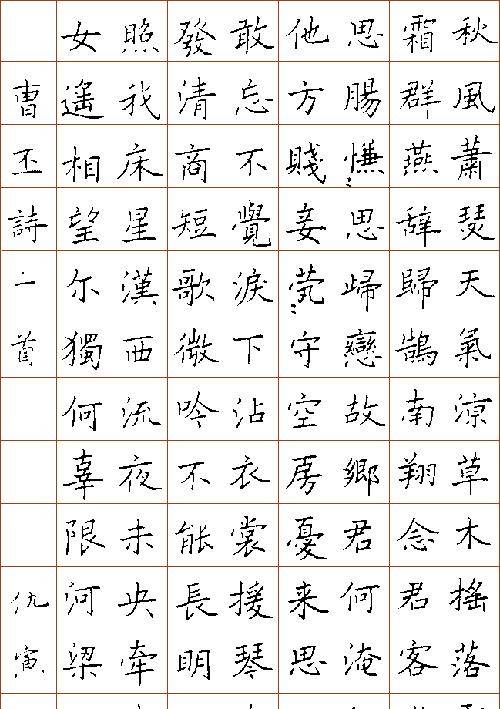 秋風蕭瑟天氣涼草木搖落
霜群燕辞歸鵠南翔念君客
思腸慊〻思歸戀故鄉君何淹
他方賤妾茕〻守空房憂来思
敢忘不覺淚下沾衣裳援琴
發清商短歌微吟不能長明
照我床星漢西流夜未央牽
女遙相望尔獨何辜限河梁
曹丕詩一首 仇寅